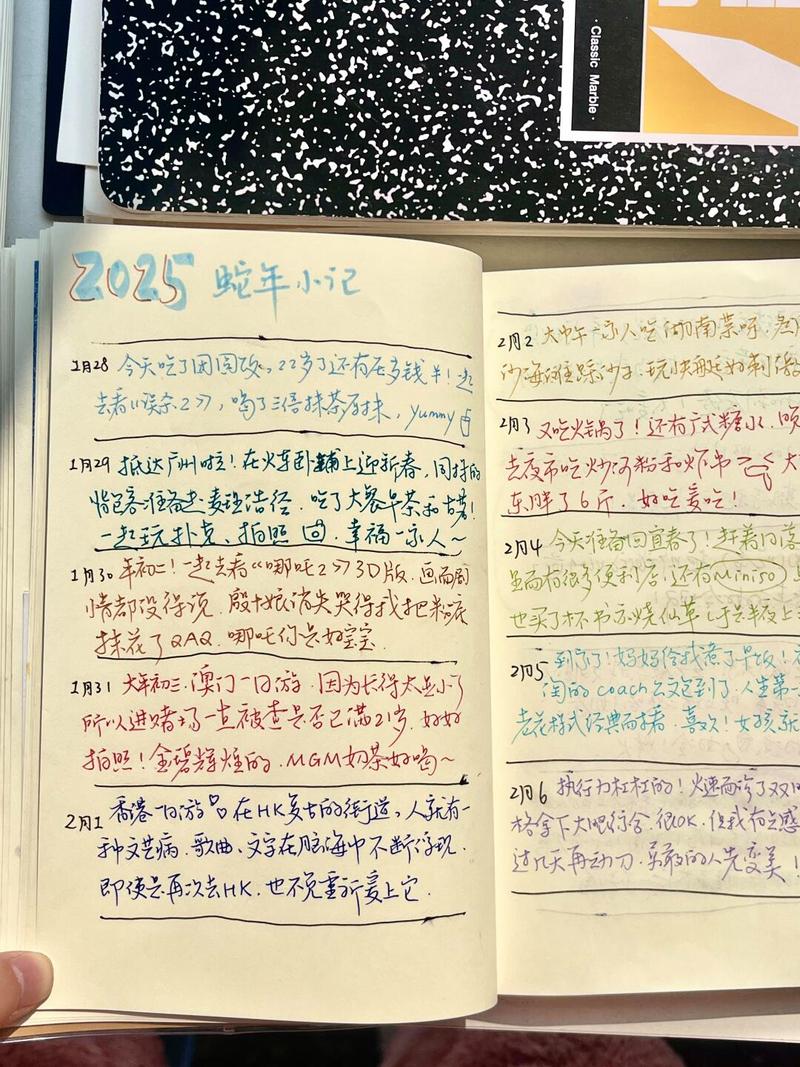 Classic Marble
2025 蛇年小记
1月28 今天吃了团圆饭。22岁了还有压岁钱!一起
去看《误杀2》,喝了三倍抹茶,yummy
1月29 抵达广州啦!在火车卧铺上迎新春,同村的
背包客准备去麦理浩径。吃了大餐早茶和
一起玩扑克、拍照,幸福一家人~
1月30 年初二!一起去看《哪吒2》3D版,画面剧
情都没得说,殷十娘消失哭得我把粉底
抹花了QAQ,哪吒你是好宝宝
1月31 大年初三,澳门一日游,因为长得太显小了
所以进赌场一直被查是否已满21岁,好好
拍照!金碧辉煌的,MGM奶茶好喝~
2月1 香港一日游 在HK复古的街道,人就有一
种文艺病,歌曲、文字在脑海中不断浮现,
即使是再次去HK,也不免重新爱上它.
2月2 大中午一家人吃
沙海滩踩沙子,玩快艇好刺激
2月3 又吃火锅了!还有广式糖水,
去夜市吃炒河粉和炸串 大
东胖了6斤,好吃爱吃!
2月4 今天准备回宜春了!赶着日落
里面有很多便利店,还有Miniso
也买了杯书亦烧仙草
2月5 到家了!妈妈给我煮了早饭!
淘的coach公文包到了,人生第一
老花样式经典耐看,喜欢!女孩就
2月6 执行力杠杠的!火速面诊了双
格拿下大眼行舍,很OK,但我有点感
过几天再动刀,勇敢的人先变美!